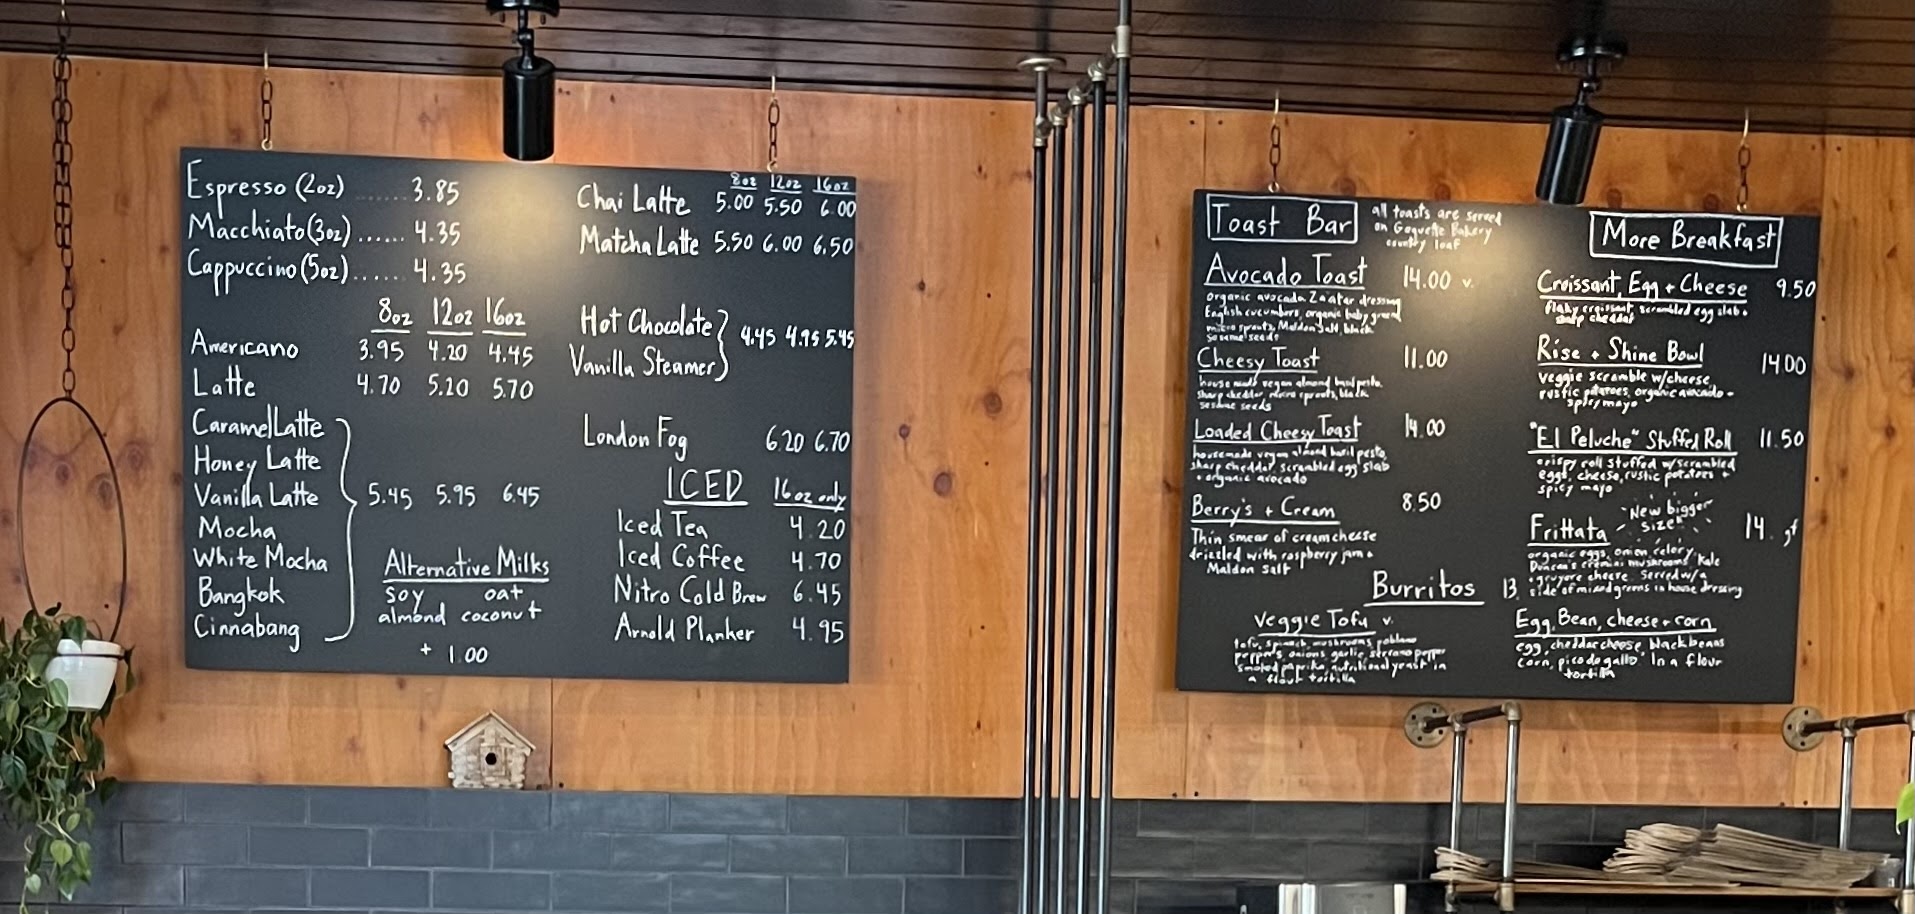 Espresso (2oz) ....... 3.85
Macchiato (3oz) ...... 4.35
Cappuccino (5oz) ...... 4.35
8oz 12oz 16oz
Americano 3.95 4.20 4.45
Latte 4.70 5.20 5.70
Caramel Latte
Honey Latte
Vanilla Latte 5.45 5.95 6.45
Mocha
White Mocha
Bangkok
Cinnabang
Alternative Milks
soy oat
almond coconut
+ 1.00
8oz 12oz 16oz
Chai Latte 5.00 5.50 6.00
Matcha Latte 5.50 6.00 6.50
Hot Chocolate
Vanilla Steamer 4.45 4.95 5.45
London Fog 6.20 6.70
ICED 16oz only
Iced Tea 4.20
Iced Coffee 4.70
Nitro Cold Brew 6.45
Arnold Planker 4.95
Toast Bar
all toasts are served
on Goguette Bakery
country loaf
Avocado Toast 14.00 v.
organic avocado, Za'atar dressing
English cucumbers, organic baby greens
micro sprouts, Maldon salt, black
sesame seeds
Cheesy Toast 11.00
house made vegan almond basil pesto,
sharp cheddar, micro sprouts, black
sesame seeds
Loaded Cheesy Toast 14.00
housemade vegan almond basil pesto,
sharp cheddar, scrambled egg slab
+ organic avocado
Berry's + Cream 8.50
Thin smear of cream cheese
drizzled with raspberry jam +
Maldon Salt
More Breakfast
Croissant, Egg + Cheese 9.50
flaky croissant, scrambled egg slab +
sharp cheddar
Rise + Shine Bowl 14.00
veggie scramble w/cheese
rustic potatoes, organic avocado +
spicy mayo
"El Peluche" Stuffed Roll 11.50
crispy roll stuffed w/scrambled
eggs, cheese, rustic potatoes +
spicy mayo
Frittata New bigger size! 14. gf
organic eggs, onion, celery,
Duncan's cremini mushrooms, Kale
+ gruyere cheese. Served w/a
side of mixed greens in house dressing
Burritos 13.
Veggie Tofu v.
tofu, spinach, mushrooms, poblano
peppers, onions, garlic, serrano pepper
smoked paprika, nutritional yeast in
a flour tortilla
Egg, Bean, cheese + corn
egg, cheddar cheese, black beans
corn, pico de gallo. In a flour
tortilla